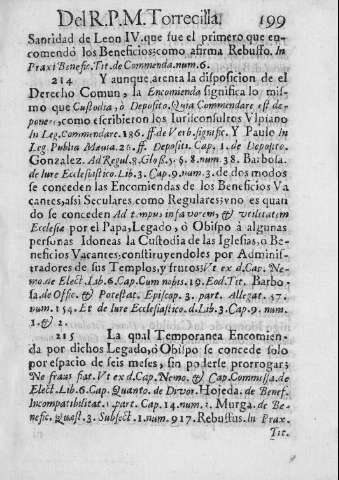 Del R. P. M. Torrecilla. 199
Santidad de Leon IV. que fue el primero que en-
comendó los Beneficios; como afirma Rebuffo. In
Praxi Benefic. Tit. de Commenda. num. 6.
214 Y aunque, atenta la disposicion de el
Derecho Comun, la Encomienda significa lo mis-
mo que Custodia, ò Deposito. Quia Commendare est de-
ponere, como escribieron los Iurisconsultos Vlpiano
In Leg. Commendare. 186. ff. de Verb. signific. Y Paulo In
Leg Publia Mævia. 26. ff. Depositi. Cap. 1. de Deposito.
Gonzalez. Ad Regul. 8. Gloß. 5. §. 8. num. 38. Barbosa.
de Iure Ecclesiastico. Lib. 3. Cap. 9. num. 3. de dos modos
se conceden las Encomiendas de los Beneficios Va
cantes, assi Seculares como Regulares; vno es quan
do se conceden Ad tempus in favorem, & vtilitatem
Ecclesiæ por el Papa, Legado, ò Obispo à algunas
personas Idoneas la Custodia de las Iglesias, o Be-
neficios Vacantes, constituyendoles por Adminis-
tradores de sus Templos, y frutos; Vt ex d. Cap. Ne-
mo. de Elect. Lib. 6. Cap. Cum nobis. 19. Eod. Tit. Barbo-
sa. de Offic. & Potestat. Episcop. 3. part. Allegat. 57.
num. 154. Et de Iure Ecclesiastico. d. Lib. 3. Cap. 9. num.
1. & 2.
215 La qual Temporanea Encomien-
da por dichos Legado, ò Obispo se concede solo
por espacio de seis meses, sin poderse prorrogar;
Ne fraus fiat. Vt ex d. Cap. Nemo. & Cap. Commissa. de
Elect. Lib. 6. Cap. Quanto. de Divor. Hojeda. de Benef.
Incompatibilitat. 1. part. Cap. 14. num. 2. Murga. de Be-
nefic. Quæst. 3. Subsect. 1. num. 917. Rebuffus. In Prax.
Tit.